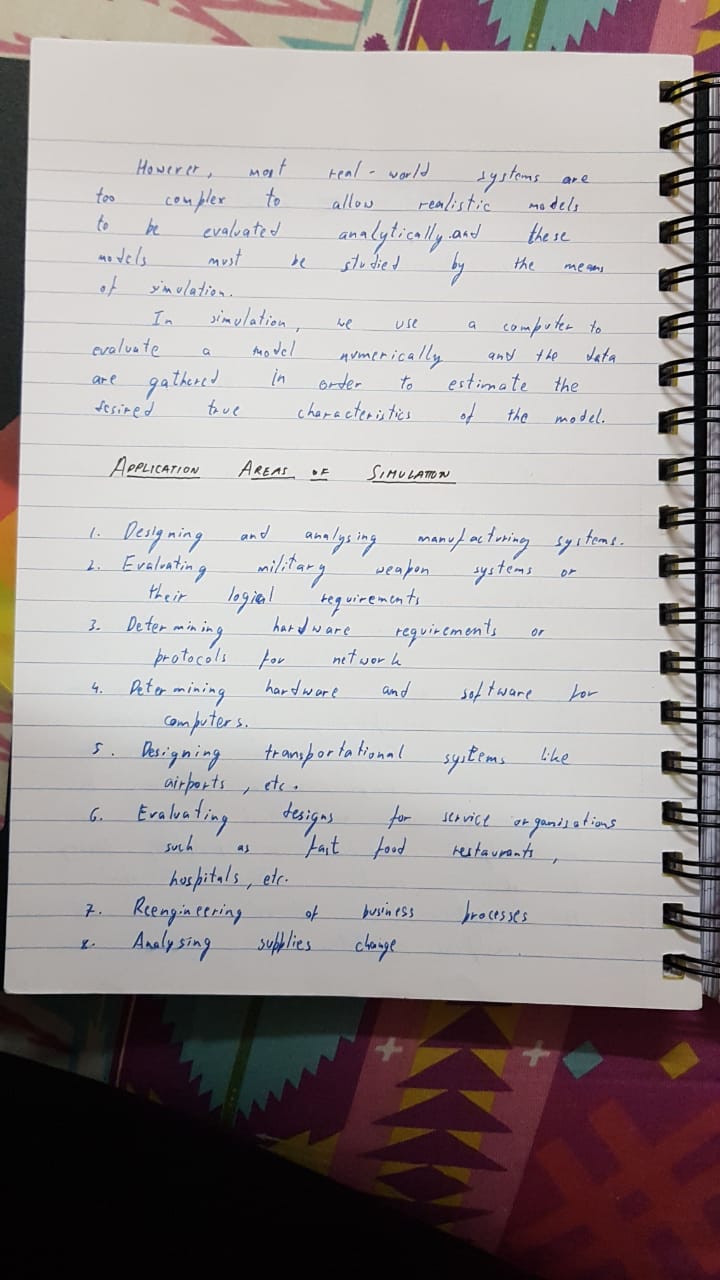 However, most real-world systems are
too complex to allow realistic models
to be evaluated analytically and these
models must be studied by the means
of simulation.
In simulation, we use a computer to
evaluate a model numerically and the data
are gathered in order to estimate the
desired true characteristics of the model.
APPLICATION AREAS OF SIMULATION
1. Designing and analysing manufacturing systems.
2. Evaluating military weapon systems or
their logical requirements
3. Determining hardware requirements or
protocols for network
4. Determining hardware and software for
computers.
5. Designing transportational systems like
airports, etc.
6. Evaluating designs for service organisations
such as fast food restaurants,
hospitals, etc.
7. Reengineering of business processes
8. Analysing supplies change